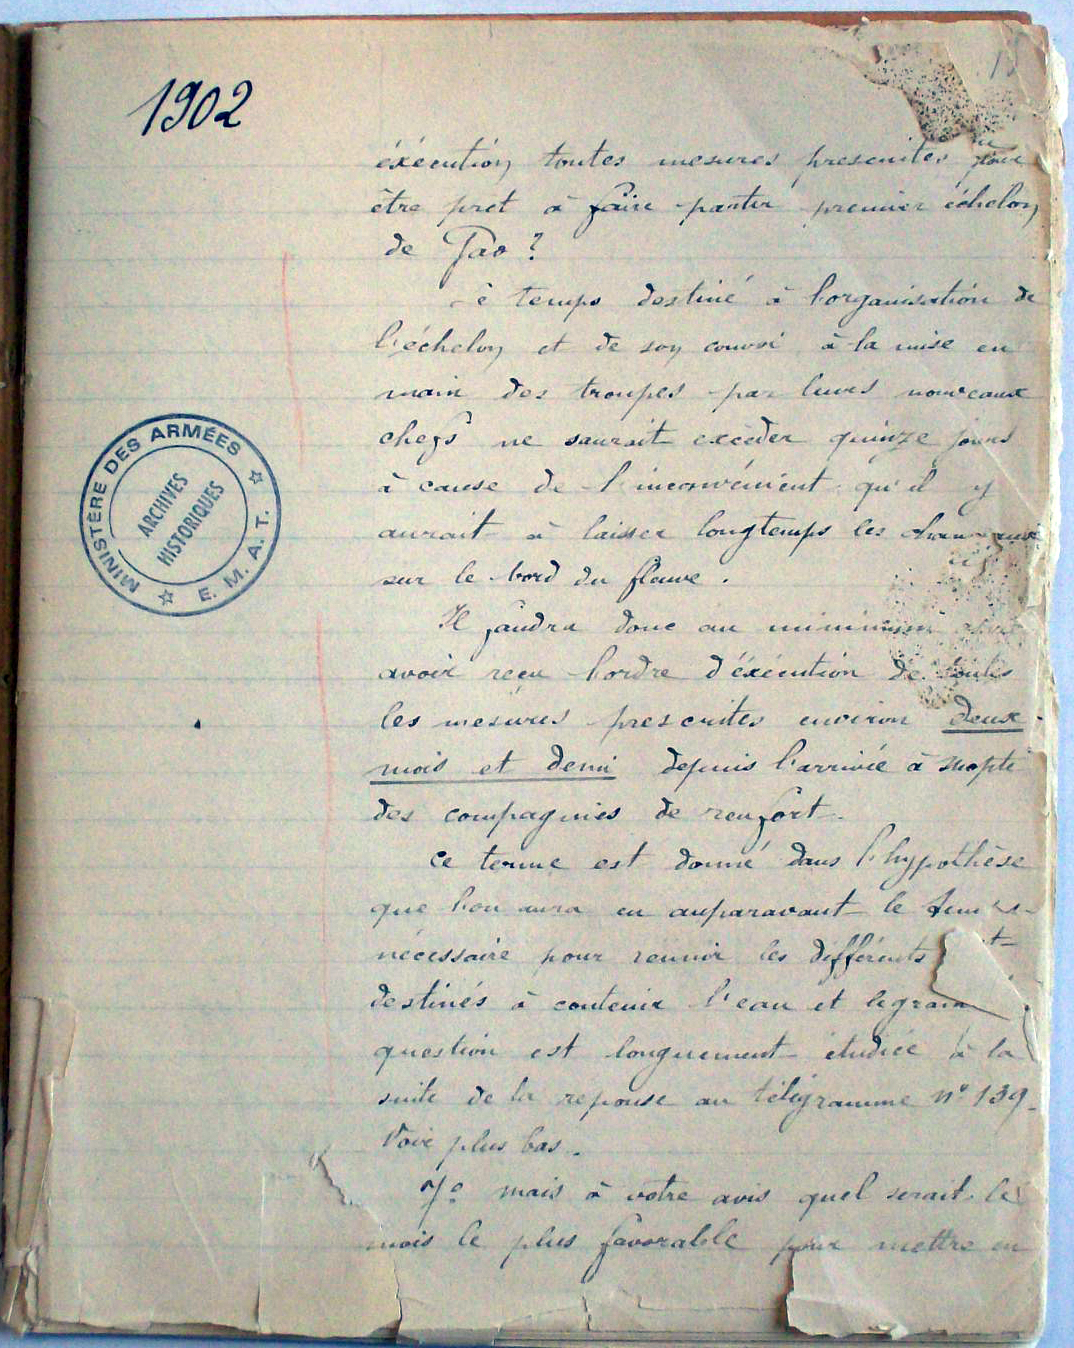 1902
éxécution toutes mesures prescrites pour
être pret à faire partir premier échelon
de Gao ?
Le temps destiné à l'organisation de
l'échelon et de son convoi à la mise en
main des troupes par leurs nouveaux
chefs ne saurait excéder quinze jours
à cause de l'inconvénient qu'il y
aurait à laisser longtemps les chameaux
sur le bord du fleuve.
Il faudra donc au minimum après
avoir reçu l'ordre d'éxécution de toutes
les mesures prescrites environ deux
mois et demi depuis l'arrivée à Mopti
des compagnies de renfort.
Ce terme est donné dans l'hypothèse
que l'on aura eu auparavant le temps
nécessaire pour reunir les différents
destinés à contenir l'eau et le grain
question est longuement étudiée à la
suite de la reponse au télégramme n° 139.
Voir plus bas.
7° mais à votre avis quel serait le
mois le plus favorable pour mettre en
MINISTÈRE DES ARMÉES
ARCHIVES
HISTORIQUES
E. M. A. T.